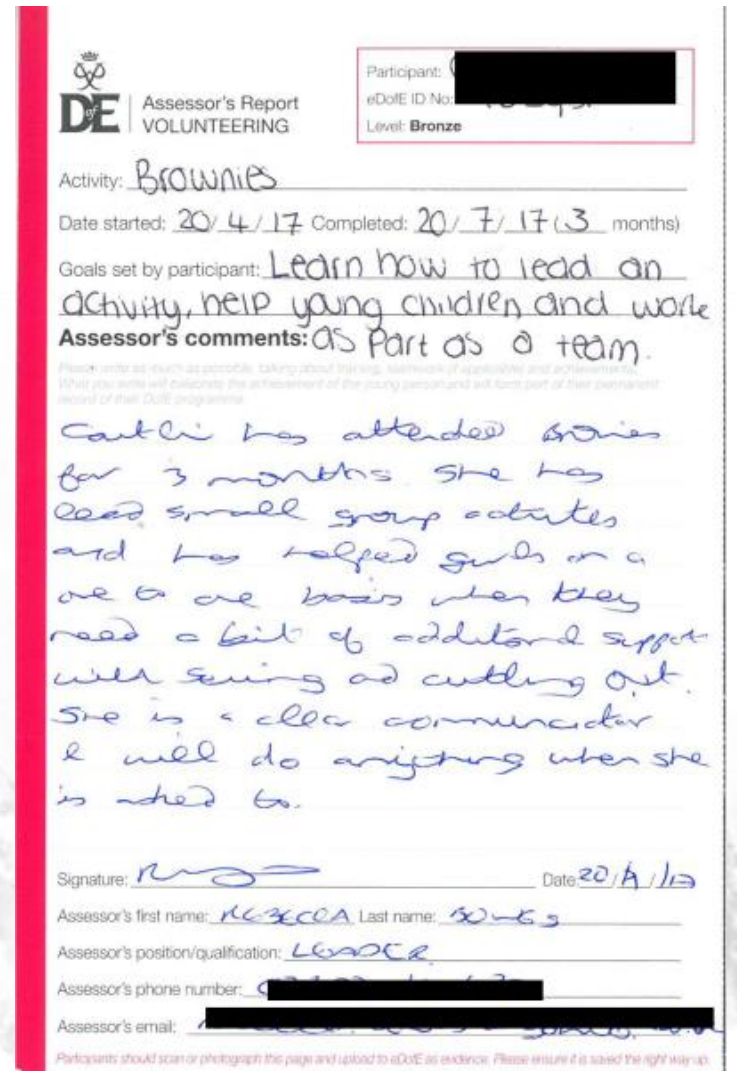 DofE
Assessor's Report
VOLUNTEERING
Participant:
eDofE ID No:
Level: Bronze
Activity: Brownies
Date started: 20/4/17 Completed: 20/7/17 (3 months)
Goals set by participant: Learn how to lead an
activity, help young children and work
Assessor's comments: as part as a team.
Please write as much as possible, talking about training, teamwork (if applicable) and achievements.
What you write will celebrate the achievement of the young person and will form part of their permanent
record of their DofE programme.
has attended
for 3 months she has
lead small group
and has helped girls on a
one to one basis when they
need a bit of additional support
with sewing and cutting out.
She is a clear communicator
& will do anything when she
is asked to.
Signature: Date: 20/ /17
Assessor's first name: REBECCA Last name:
Assessor's position/qualification: LEADER
Assessor's phone number:
Assessor's email:
Participants should scan or photograph this page and upload to eDofE as evidence. Please ensure it is saved the right way up.